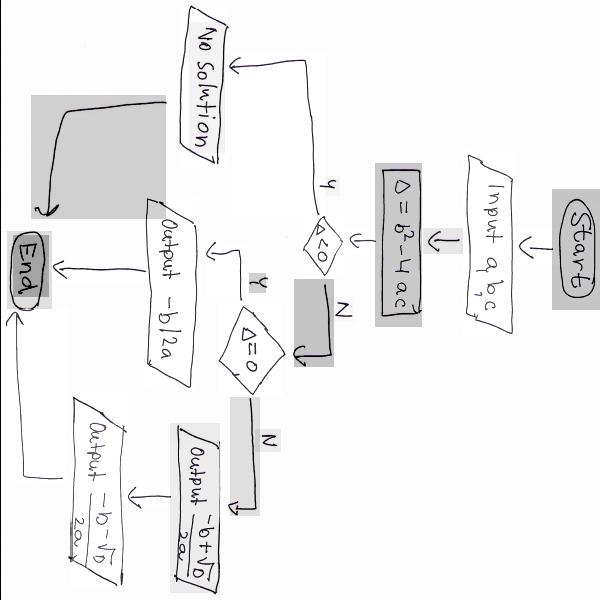 Start
Input a,b,c
Δ = b²-4ac
Δ<0
Y
N
No solution
Δ=0
Y
N
Output -b/2a
Output -b+√D
2a
Output -b-√D
2a
End